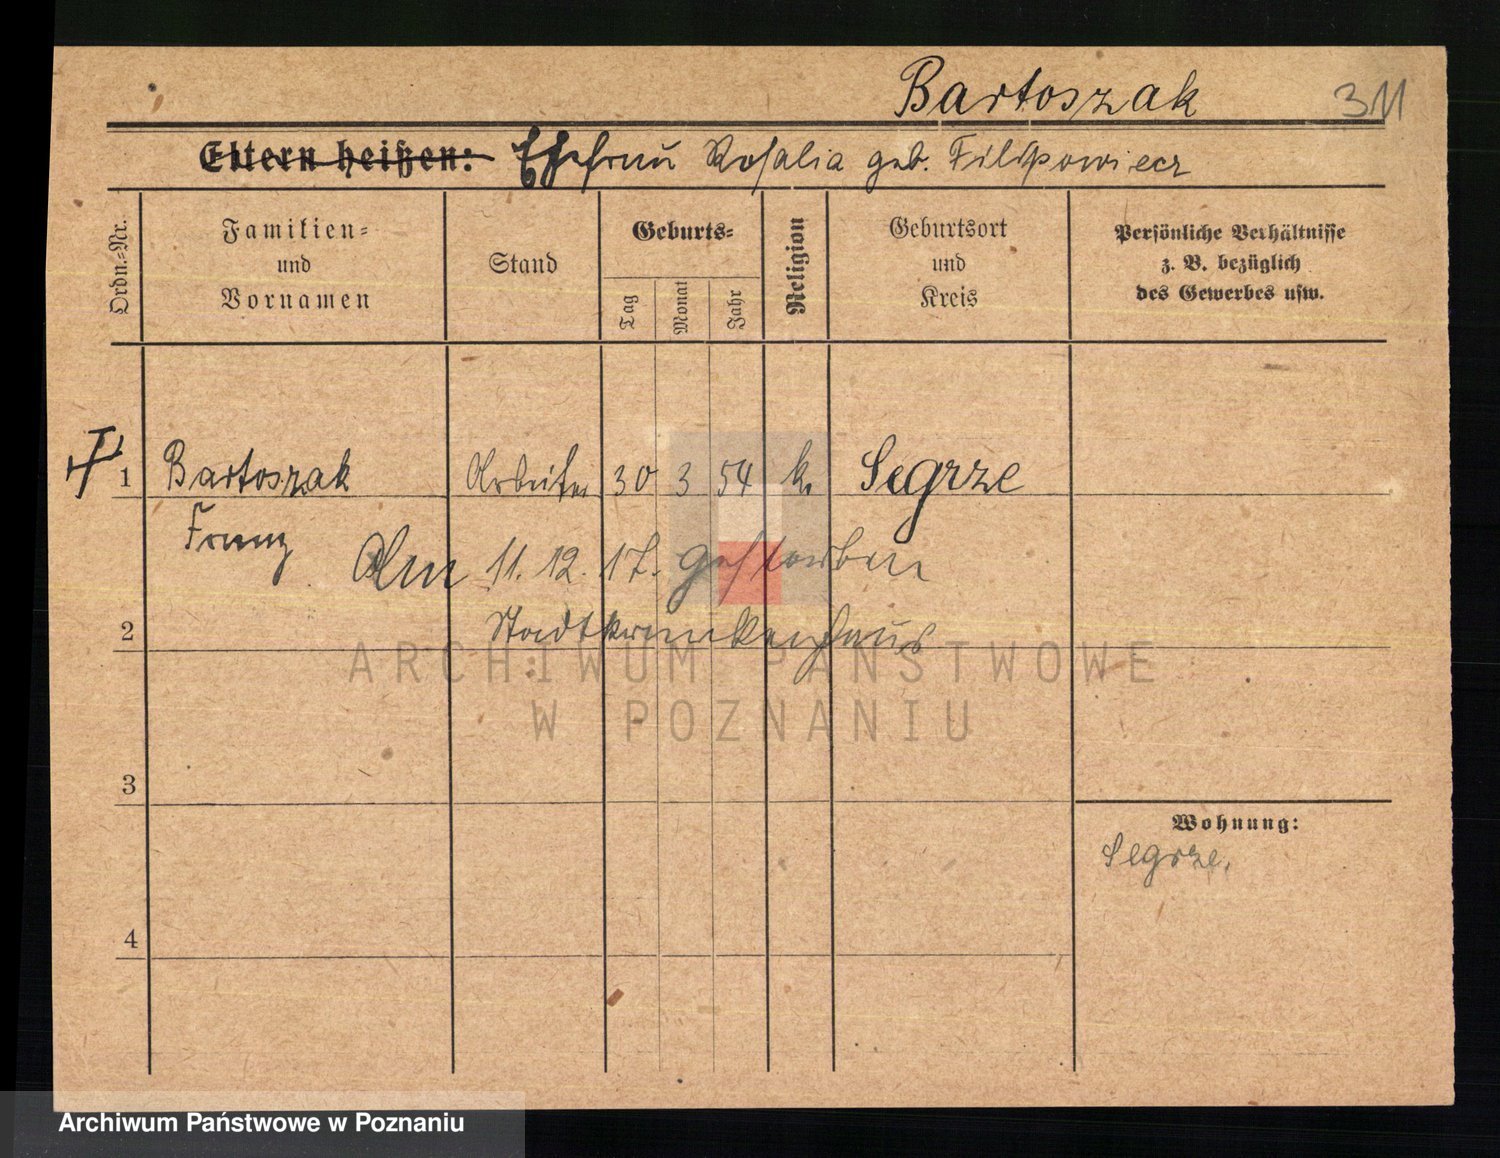 Bartoszak 311
Eltern heißen: Ehefrau Rosalia geb. Filipowiecz
Ordn.-Nr.
Familien-
und
Vornamen
Stand
Geburts-
Tag
Monat
Jahr
Religion
Geburtsort
und
Kreis
Persönliche Verhältnisse
z. B. bezüglich
des Gewerbes usw.
1 Bartoszak Arbeiter 30 3 54 k. Segrze
Franz
Am 11. 12. 17. gestorben
2 Stadtkrankenhaus
ARCHIWUM PAŃSTWOWE
W POZNANIU
3
Wohnung:
Segrze.
4
Archiwum Państwowe w Poznaniu